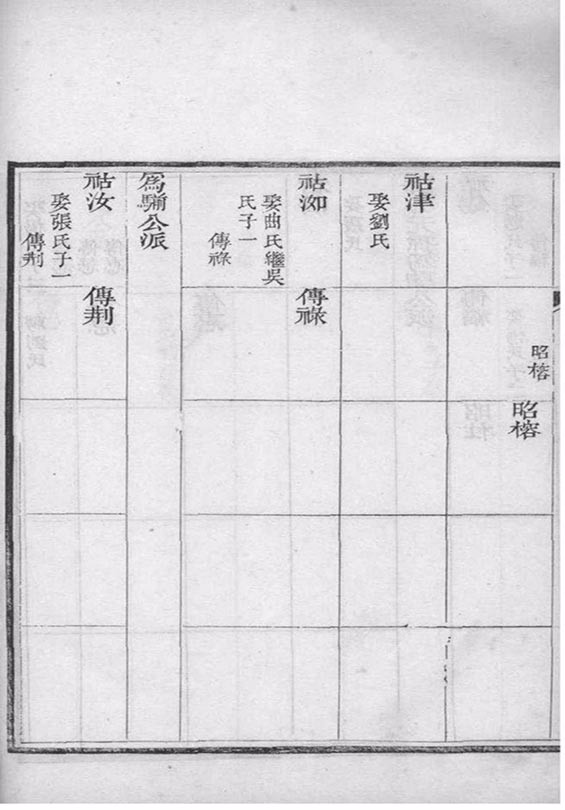 昭榕
昭榕
祜津
娶劉氏
祜洳
娶曲氏繼吳
氏子一
傳祿
傳祿
為騧公派
祜汝
娶張氏子一
傳荆
傳荆